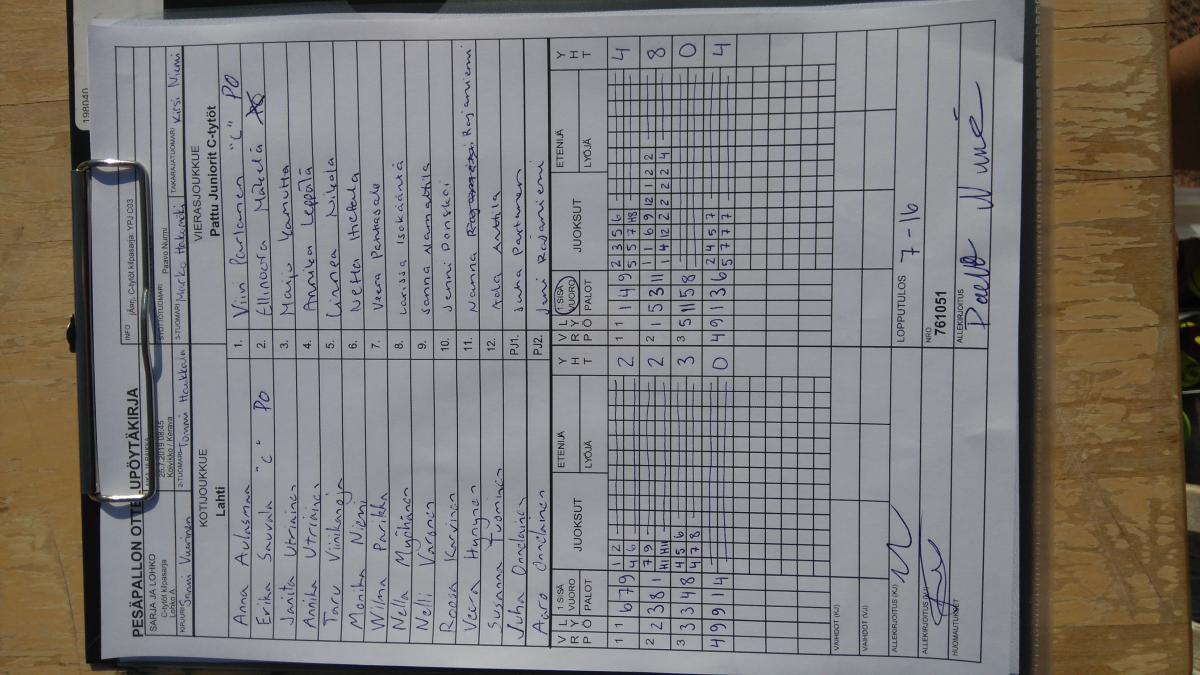 198040
PESÄPALLON OTTELUPÖYTÄKIRJA
INFO jÄarj. C-tytöt kilpasarja: YPJ C03
SARJA JA LOHKO
C-tytöt kilpasarja
Lohko A
25.7.2019 08:45
Koivikko / Kerava
SYÖTTÖTUOMARI Paavo Nurmi
KIRJURI Sami Vuorinen
2-TUOMARI Tommi Haukkala
3-TUOMARI Marko Hakamäki
TAKARAJATUOMARI Kirsi Niemi
KOTIJOUKKUE
Lahti
VIERASJOUKKUE
Pattu Juniorit C-tytöt
Anna Aulasmaa 1. Viivi Partanen "C" PO
Erika Sauvala "C" PO 2. Ellinoora Mäkelä
Janita Utriainen 3. Marju Kamutta
Annika Utriainen 4. Annika Leppälä
Taru Viinikanoja 5. Linnea Nikola
Monika Niemi 6. Netta Hietala
Wilma Parikka 7. Veera Pennasalo
Nella Myöhänen 8. Larissa Isokääntä
Nelli Varonen 9. Sanna Mannattila
Roosa Karvinen 10. Jenni Donskoi
Veera Hynynen 11. Nanna Rajaniemi
Susanna Tuominen 12. Anttila
Juha Onnelainen PJ1. Juha Partanen
Aaro Onnelainen PJ2. Rajaniemi
V P L Y R Ö 1.SISÄ VUORO PALOT JUOKSUT ETENIJÄ LYÖJÄ Y H T
V P L Y R Ö 1.SISÄ VUORO PALOT JUOKSUT ETENIJÄ LYÖJÄ Y H T
1 1 6 7 9 1 2 4 6 2
1 1 1 4 9 2 3 5 6 5 5 7 H8 4
2 2 3 8 1 7 9 2
2 1 5 3 11 1 1 6 9 12 1 2 2 1 4 12 2 2 2 2 4 8
3 3 3 4 8 4 5 6 4 7 8 3
3 5 11 5 8 0
4 9 9 1 4 0
4 9 1 3 6 2 4 5 7 5 7 7 7 4
VAIHDOT (KJ)
VAIHDOT (VJ)
ALLEKIRJOITUS (KJ)
ALLEKIRJOITUS (VJ)
HUOMAUTUKSET
LOPPUTULOS 7-16
NRO
761051
ALLEKIRJOITUS
Paavo Nurmi